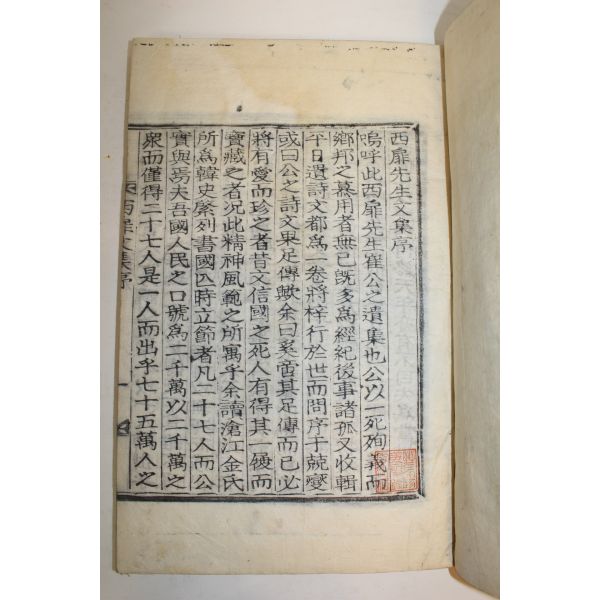 西扉先生文集序
嗚呼此西扉先生崔公之遺集也公以一死殉義而
鄕邦之慕用者無已旣多爲經紀後事諸孤又收輯
平日遺詩文都爲一卷將梓行於世而問序于兢燮
或曰公之詩文果足傳歟余曰奚啻其足傳而已必
將有愛而珍之者昔文信國之死人有得其一履而
寶藏之者况此精神風範之所寓乎余讀滄江金氏
所爲韓史綮列書國亾時立節者凡二十七人而公
實與焉夫吾國人民之口號爲二千萬以二千萬之
衆而僅得二十七人是一人而出乎七十五萬人之
西扉文集序
一